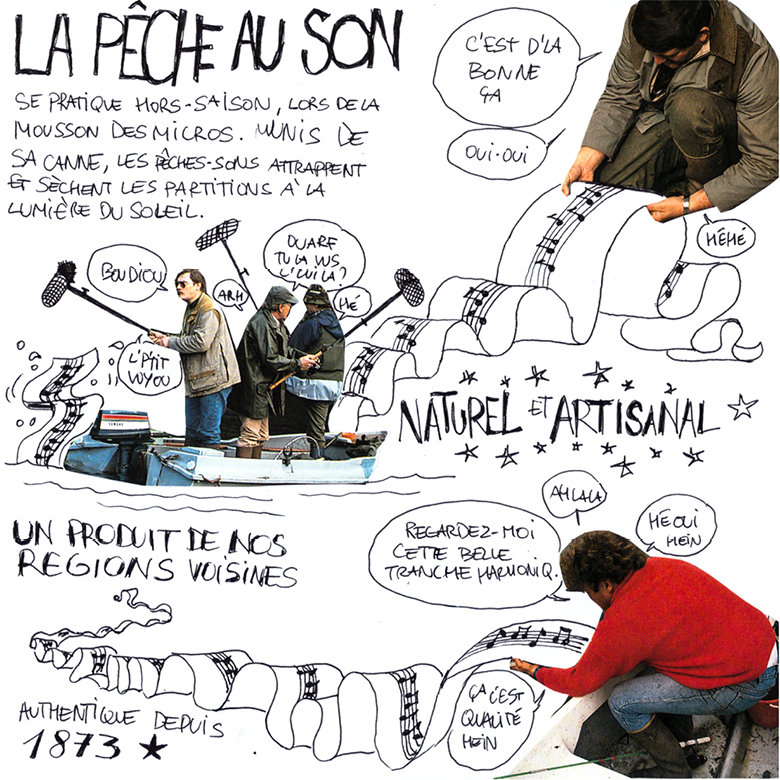 LA PÊCHE AU SON
SE PRATIQUE HORS-SAISON, LORS DE LA
MOUSSON DES MICROS. MUNIS DE
SA CANNE, LES PÊCHES-SONS ATTRAPPENT
ET SÈCHENT LES PARTITIONS À LA
LUMIÈRE DU SOLEIL.
C'EST D'LA
BONNE
ÇA
OUI-OUI
HÉHÉ
BOUDIOU
ARH
OUARF
TU LA VUS
C'LUI LÀ?
HÉ
L'P'TIT
VOYOU
YAMAHA
NATUREL ET ARTISANAL
UN PRODUIT DE NOS
REGIONS VOISINES
AH LALA
REGARDEZ-MOI
CETTE BELLE
TRANCHE HARMONIQ.
HÉ OUI
HEIN
ÇA C'EST
QUALITÉ
HEIN
AUTHENTIQUE DEPUIS
1873